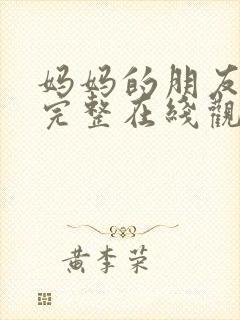 妈妈的朋友
完整在线觀
黄李荣